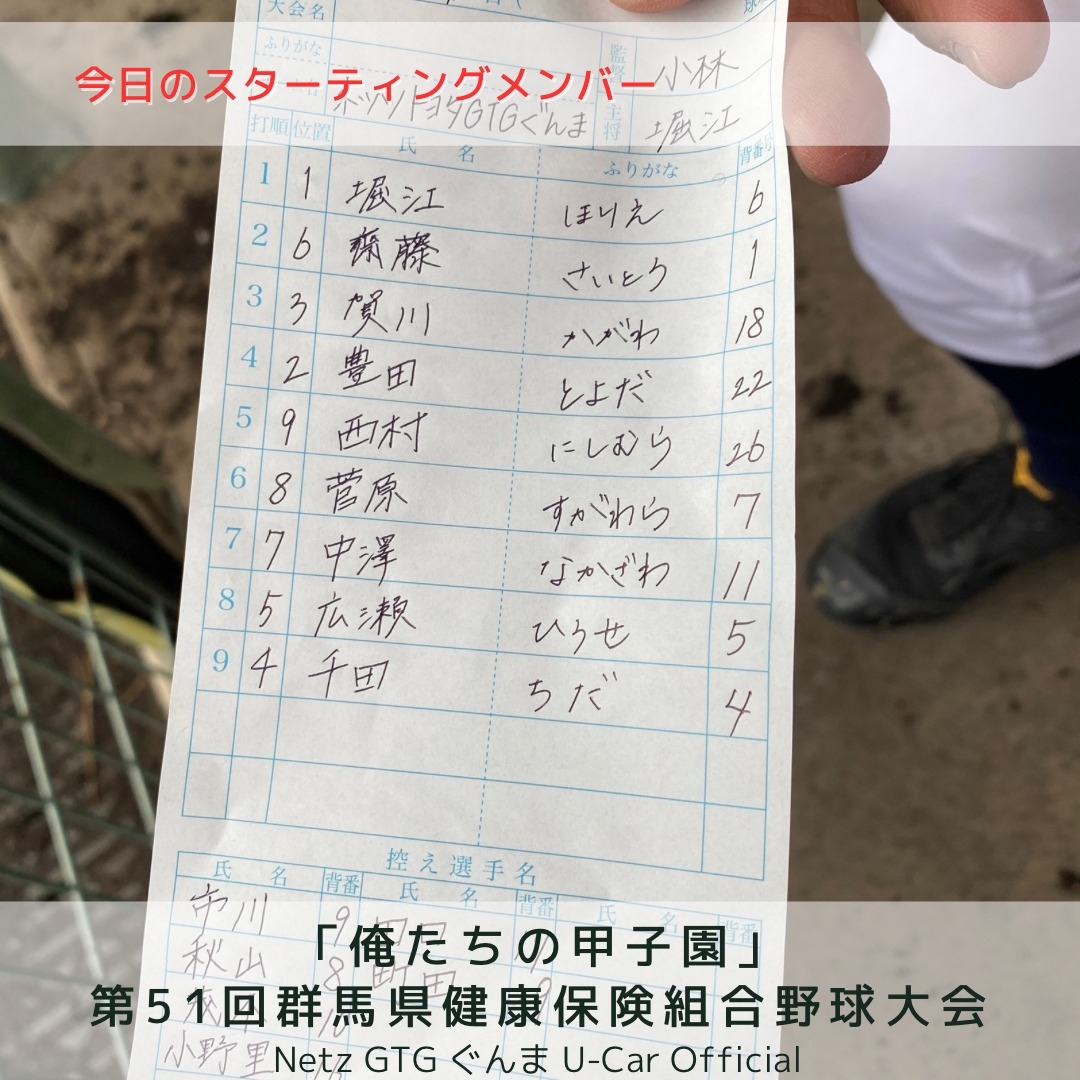 大会名
今日のスターティングメンバー
ふりがな 監督 小林
ネッツトヨタGTGぐんま 主将 堀江
打順 位置 氏名 ふりがな 背番号
1 1 堀江 ほりえ 6
2 6 齋藤 さいとう 1
3 3 賀川 かがわ 18
4 2 豊田 とよだ 22
5 9 西村 にしむら 26
6 8 菅原 すがわら 7
7 7 中澤 なかざわ 11
8 5 広瀬 ひろせ 5
9 4 千田 ちだ 4
控え選手名
氏名 背番 氏名 背番 氏名 背番
市川 9
秋山 8 町田
小野里
「俺たちの甲子園」
第51回群馬県健康保険組合野球大会
Netz GTG ぐんま U-Car Official